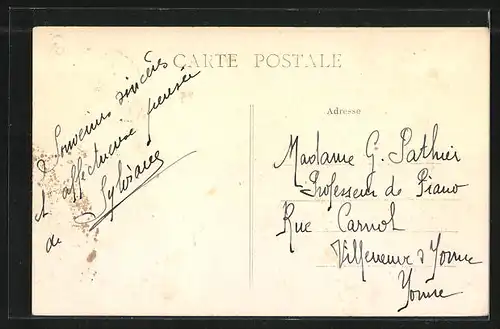 CARTE POSTALE
Souvenirs sincères
et affectueuse pensée
de Sylviane
Adresse
Madame G. Pathier
Professeur de Piano
Rue Carnot
Villeneuve s/ Yonne
Yonne